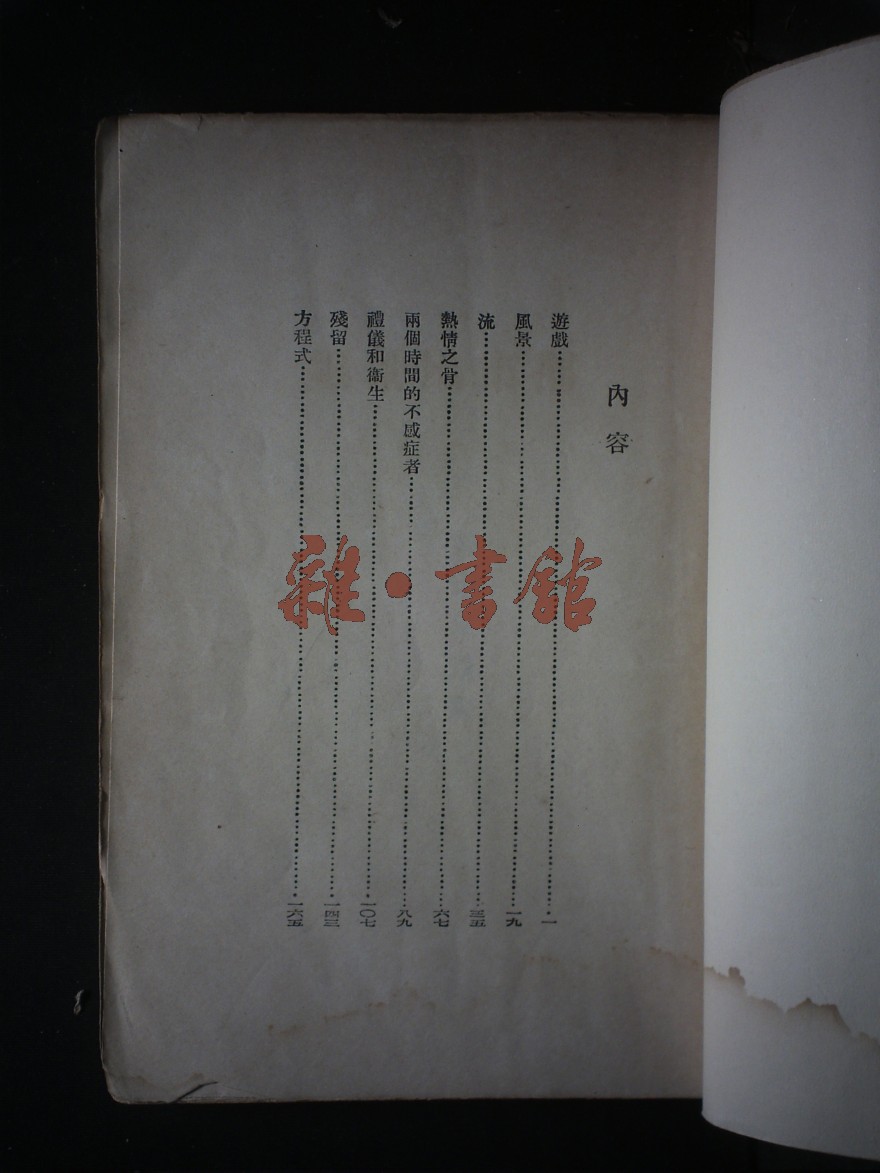 內容
遊戲一
風景一九
流三五
熱情之骨六七
兩個時間的不感症者八九
禮儀和衞生一〇七
殘留一四三
方程式一六五
雜·書館